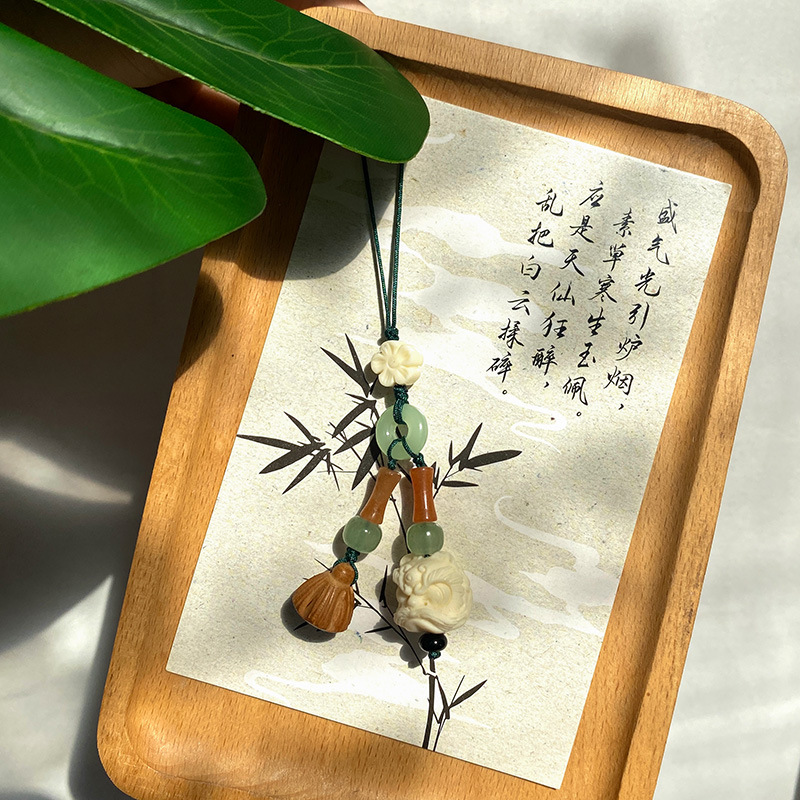 盛气光引炉烟，
素草寒生玉佩。
应是天仙狂醉，
乱把白云揉碎。